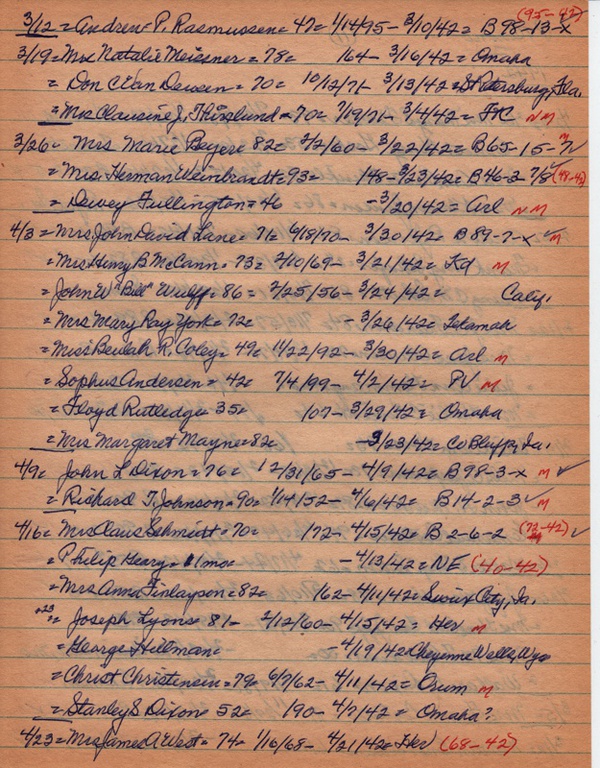 (95-42)
3/12 = Andrew P. Rasmussen = 47 = 1/14/95 - 3/10/42 = B 98-13-X
3/19 = Mrs Natalie Meisner = 78 = 164 - 3/16/42 = Omaha
= Don Clan Deusen = 70 = 10/12/71 - 3/13/42 = St Petersburg, Fla.
= Mrs Clausine J. = 70 = 7/19/71 - 3/4/42 = FK NM
3/26 = Mrs Marie Beyer = 82 = 2/2/60 - 3/22/42 = B65-15-7 ✓ M
= Mrs. Herman Weinbrandt = 93 = 148 - 3/23/42 = B 46-2-7/8 ✓ (48-42)
= Dewey Fullington = 46 - 3/20/42 = Arl NM
4/3 = Mrs John David Lane = 71 = 6/18/70 - 3/30/42 = B 89-7-X ✓ M
= Mrs Henry B McCann = 73 = 2/10/69 - 3/21/42 = Kd M
= John W "Bill" Wulff = 86 = 2/25/56 - 3/24/42 = Calif.
= Mrs Mary Ray York = 72 = - 3/26/42 = Tekamah
= Miss Beulah R. Coley = 49 = 11/22/92 - 3/30/42 = Arl M
= Sophus Andersen = 42 = 7/4/99 - 4/2/42 = PV M
= Floyd Rutledge = 35 = 107 - 3/29/42 = Omaha
= Mrs Margaret Mayne = 82 = - 3/23/42 = Co Bluffs, Ia.
4/9 = John L Dixon = 76 = 12/31/65 - 4/9/42 = B 98-3-X M ✓
= Richard T. Johnson = 90 = 1/14/52 - 4/6/42 = B 14-2-3 ✓ M
4/16 = Mrs Claus Schmidt = 70 = 172 - 4/15/42 = B 2-6-2 (72-42) M ✓
= Philip Heary = 11 mo = - 4/13/42 = NE (40-42)
= Mrs Anna Finlayson = 82 = 162 - 4/11/42 = Sioux City, Ia.
4/23 = Joseph Lyons = 81 - 2/12/60 - 4/15/42 = Her M
= George Hillman = - 4/19/42 = Cheyenne Wells, Wyo
= Christ Christensen = 79 = 6/7/62 - 4/11/42 = Orum M
= Stanley S Dixon = 52 = 190 - 4/7/42 = Omaha?
4/23 = Mrs James A West = 74 = 1/16/68 - 4/21/42 = Her (68-42)